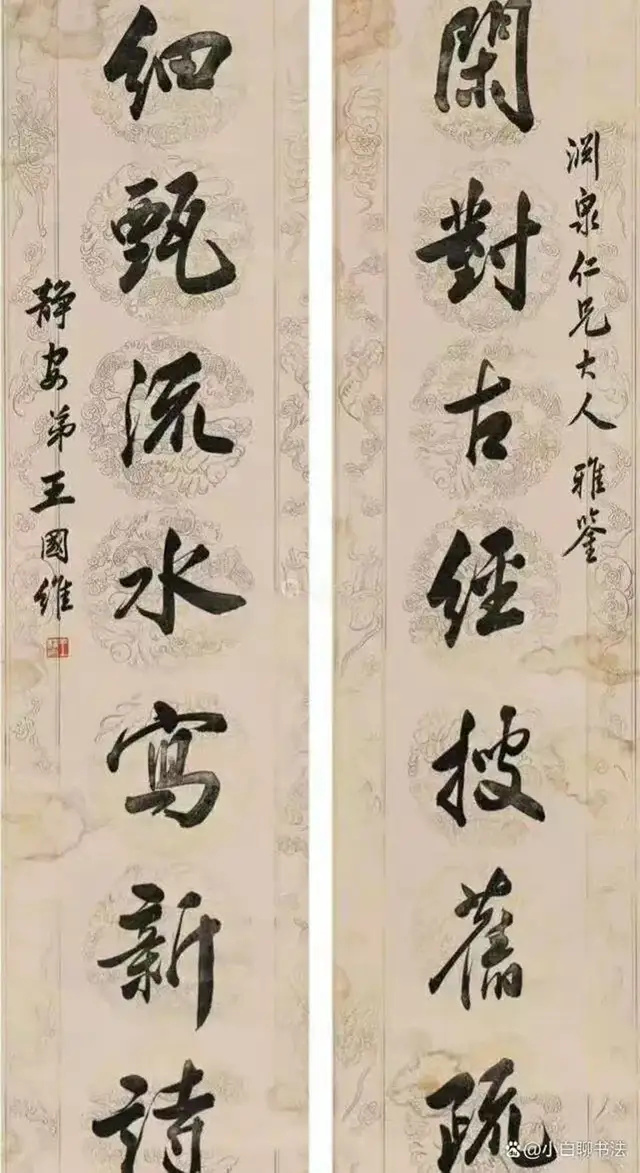 渊泉仁兄大人雅鉴
閑對古經搜舊疏
細甄流水寫新詩
静安弟王國維
小白聊书法